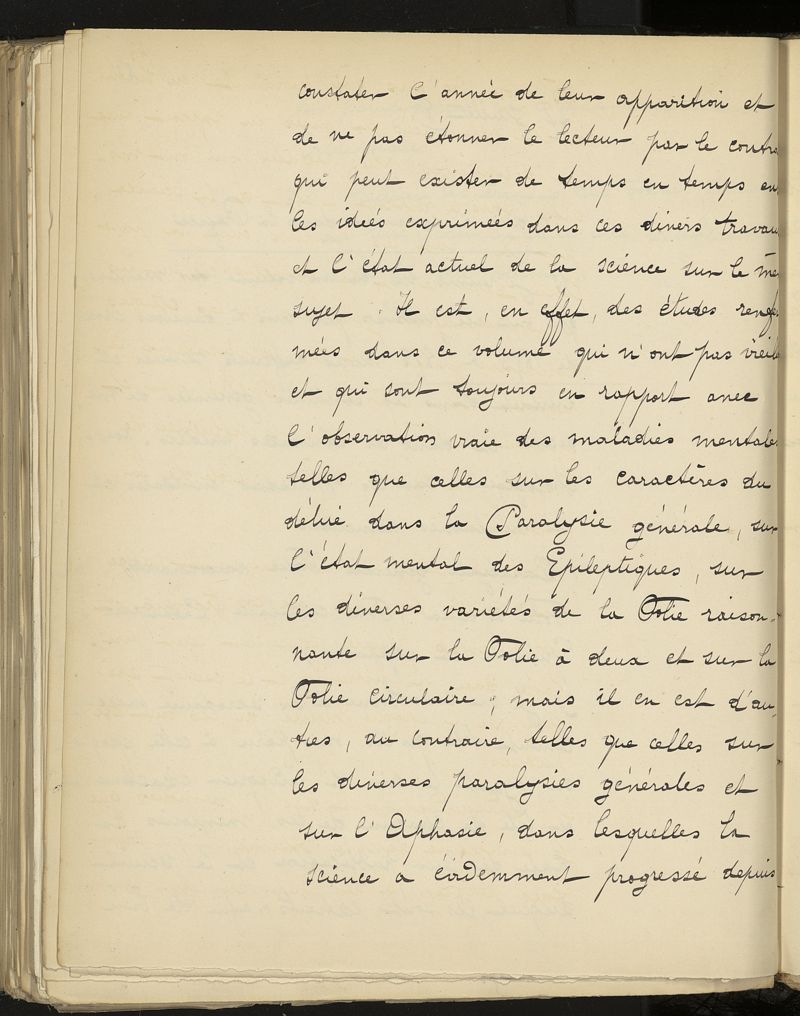 constater l'année de leur apparition et
de ne pas étonner le lecteur par le contra
qui peut exister de temps en temps en
les ideés expriméés dans ces divers travau
et l'état actuel de la science sur le mê
sujet. Il est, en effet, des études renfer
meés dans ce volume qui n'ont pas vieill
et qui sont toujours en rapport avec
l'observation vraie des maladies mentale
telles que celles sur les caractères du
délire dans la Paralysie générale, sur
l'état mental des Epileptiques, sur
les diverses variétés de la Folie raison-
nante sur la Folie à deux et sur la
Folie circulaire; mais il en est d'au-
tres, au contraire, telles que celles sur
les diverses paralysies générales et
sur l'Aphasie, dans lesquelles la
science a évidemment progressé depuis